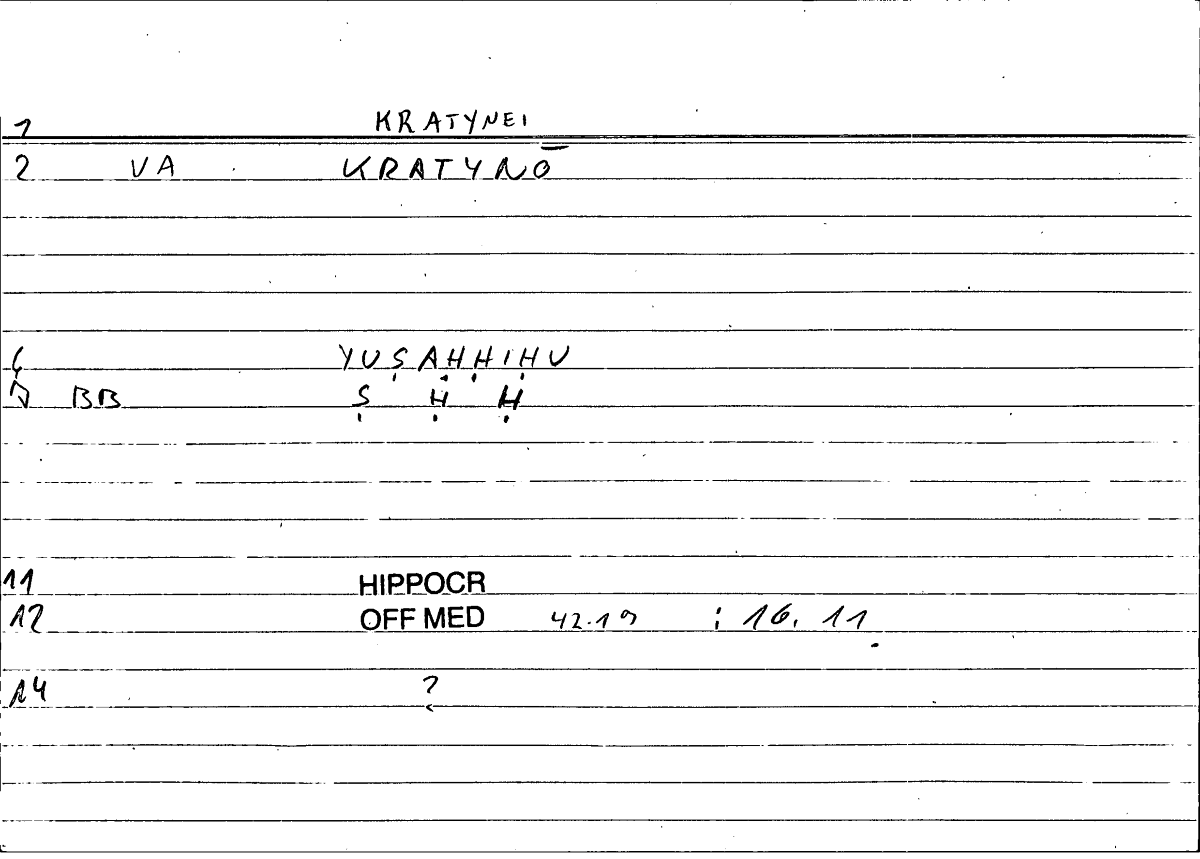 1 KRATYNEI
2 VA KRATYNŌ
6 YUṢAḤḤIḤU
7 BB Ṣ Ḥ Ḥ
11 HIPPOCR
12 OFF MED 42.19 : 16. 11
14 ?